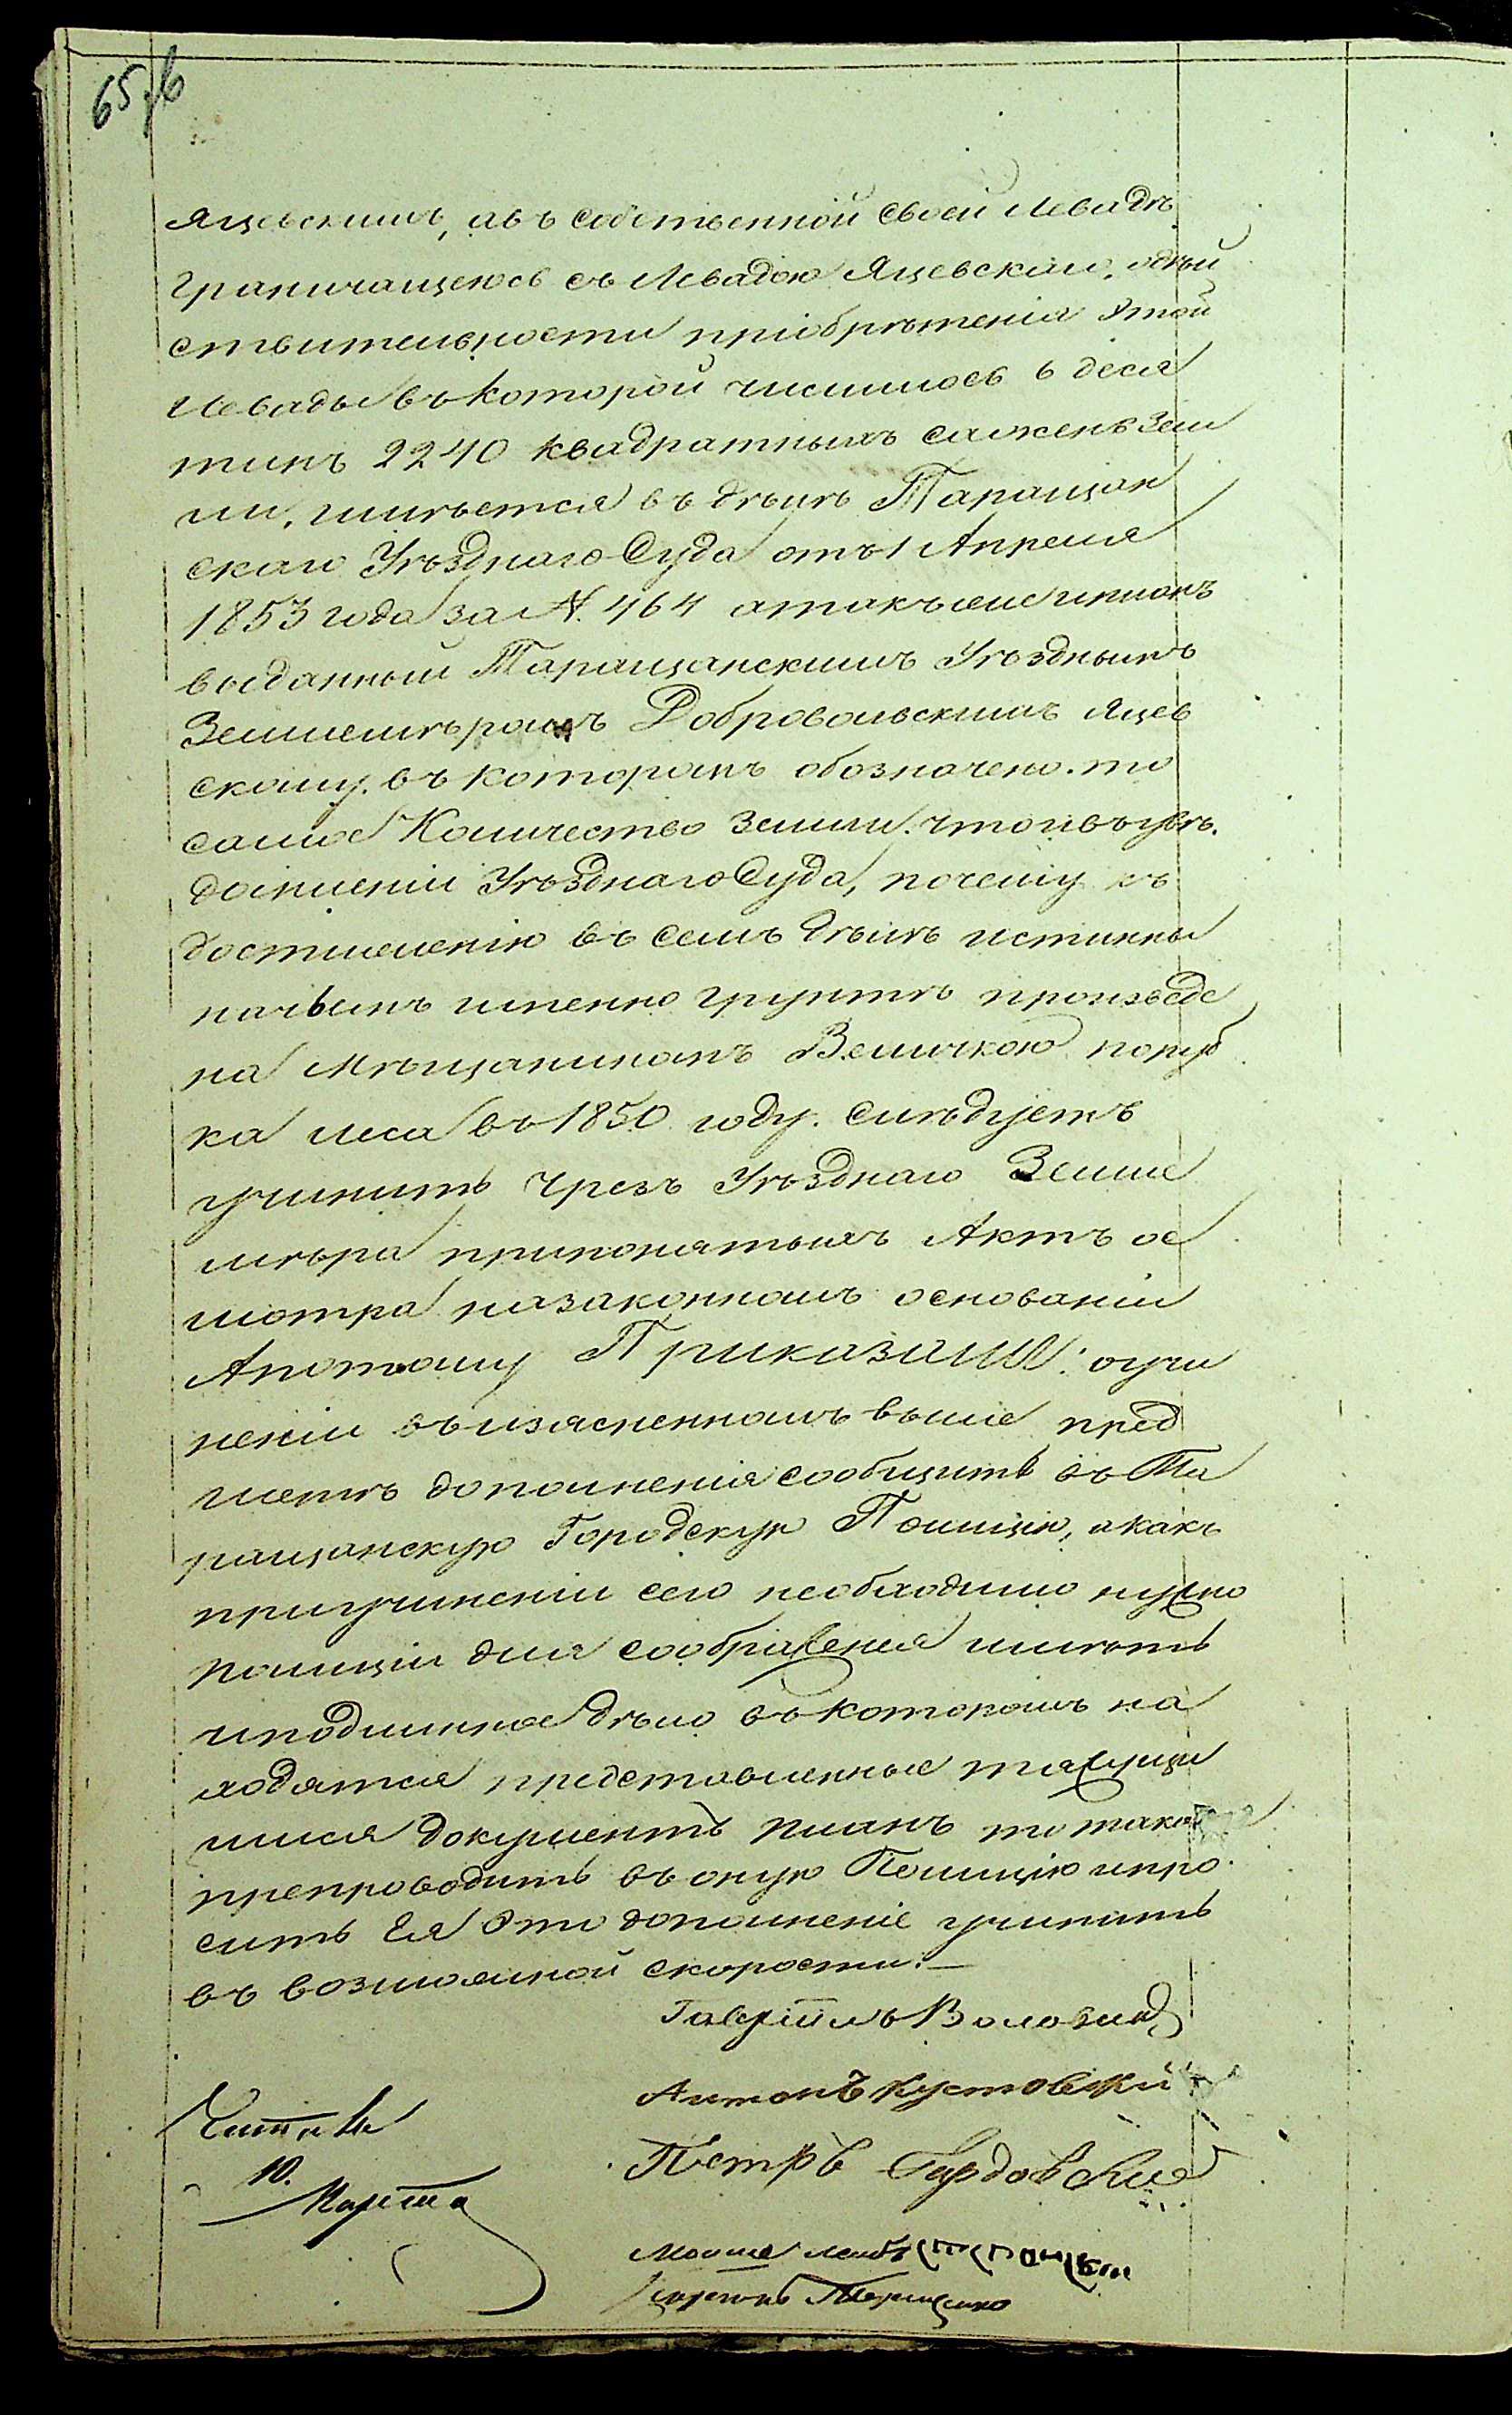 65 об
Яцевскимъ, а въ собственной своей Левадѣ
Граничащеюсь съ Левадою Яцевскаго, о дѣй
ствительности пріобрѣтенія Этой
Левады въ которой числилось 6 деся
тинъ 2240 квадратныхъ саженъ Зем
ли, имѣется въ дѣлѣ Таращан
скаго Уѣзднаго Суда отъ 1 Апреля
1853 года за N. 464 а такъ же и планъ
выданный Таращанскимъ Уѣзднымъ
Землемѣромъ Добровольскимъ Яцев
скому, въ которомъ обозначено то
самое Количество Земли, что и въ увѣ
домленіи Уѣзднаго Суда, почему къ
достиженію въ семъ дѣлѣ истинны
на чьемъ именно грунтѣ произведе
на Мѣщаниномъ Величкою поруб
ка леса въ 1850 году. Слѣдуетъ
учинить Чрезъ Уѣзднаго Земле
мѣра при понятыхъ Актъ ос
мотра на законномъ основаніи
А потому Приказали: о учи
неніи въ изясненномъ выше пред
метѣ дополненія сообщить въ Та
ращанскую Городскую Полицію, а какъ
при учиненіи сего необходимо нужно
полиціи для соображенія иметь
и подлинное дѣло въ которомъ на
ходятся представленные тяжущи
мися документъ планъ то такое
препроводить въ оную Полицію и про
сить Ея Это дополненіе учинить
въ возможной скорости.—
Гавріилъ
Антонъ Кустовскій
Читалъ
10.
Марта
Петръ Гардовскій